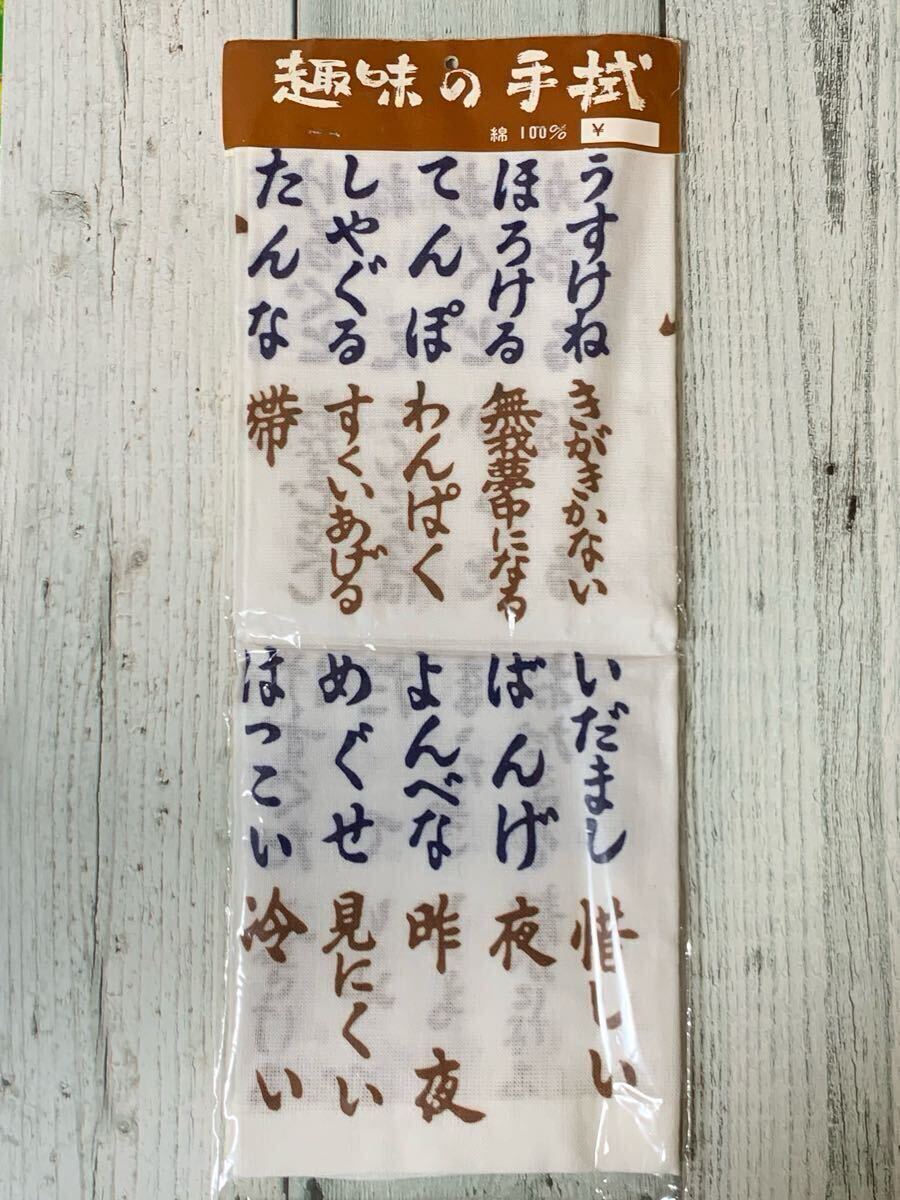 趣味の手拭
綿 100% ¥
うすけね きがきかない
ほろける 無我夢中になる
てんぽ わんぱく
しやぐる すくいあげる
たんな 帯
いだまし 惜しい
ばんげ 夜
よんべな 昨夜
めぐせ 見にくい
ほっこい 冷い